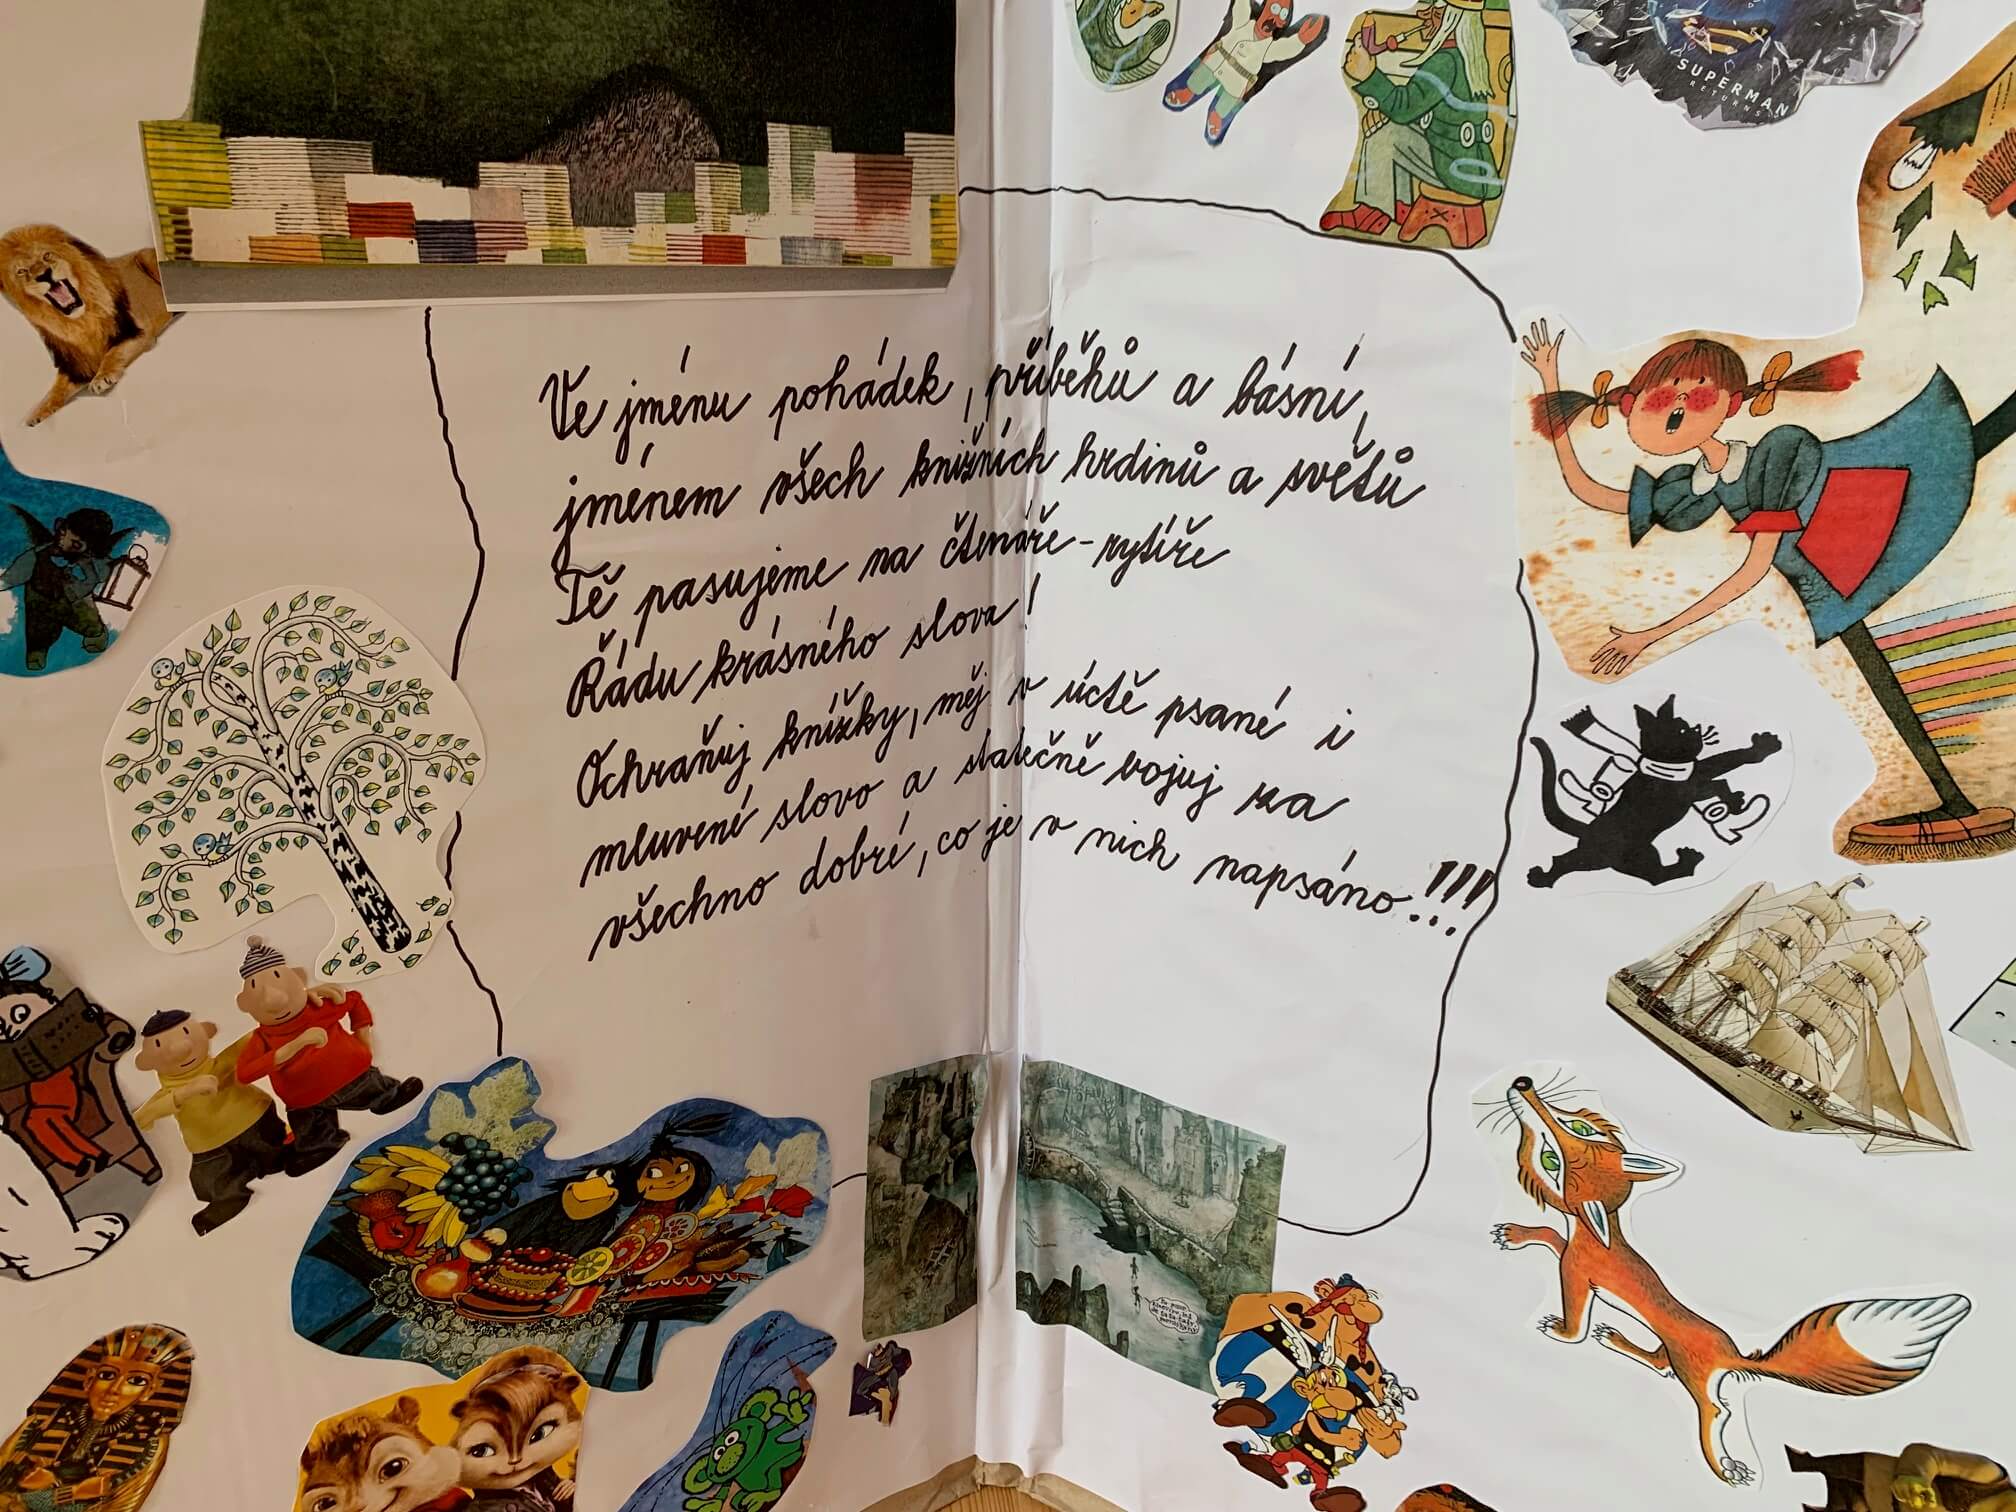 SUPERMAN
RETURNS
Ve jménu pohádek, příběhů a básní,
jménem všech knižních hrdinů a světů
Tě pasujeme na čtenáře-rytíře
Řádu krásného slova!
Ochraňuj knížky, měj v úctě psané i
mluvené slovo a statečně bojuj za
všechno dobré, co je v nich napsáno!!!